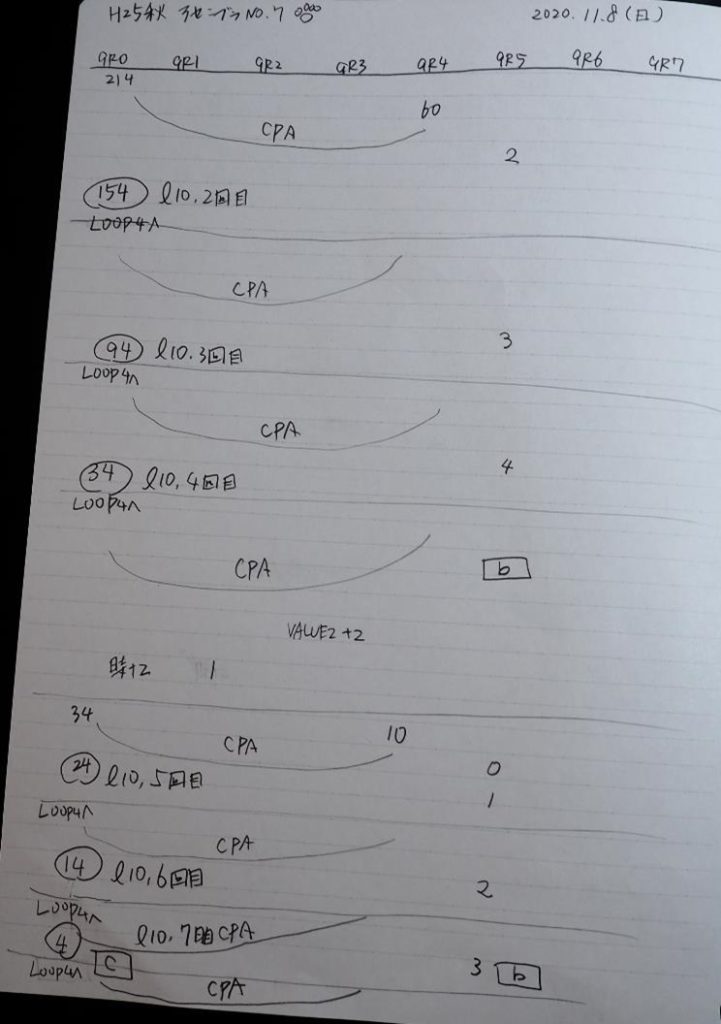 H25秋 アセンブラNO.7
2020.11.8(日)
GR0 GR1 GR2 GR3 GR4 GR5 GR6 GR7
214
60
CPA
2
154 l10.2回目
LOOP4へ
CPA
3
94 l10.3回目
LOOP4へ
CPA
4
34 l10.4回目
LOOP4へ
CPA b
VALUE2+2
時+2 1
34
10
CPA
0
24 l10,5回目
1
LOOP4へ
CPA
14 l10,6回目
2
LOOP4へ
4 l10.7回目CPA
LOOP4へ C 3 b
CPA